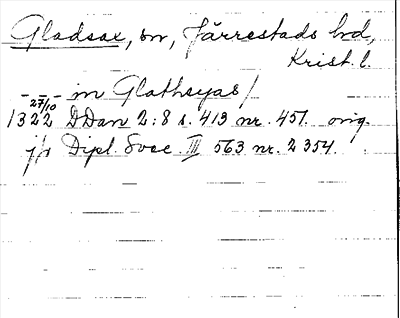 Gladsax, sn, Järrestads hd,
Krist. l.
- - - in Glathsyas /
27/10
1322 DDan 2:8 s. 413 nr. 457. orig.
jfr Dipl. Svec. III 563 nr. 2354.